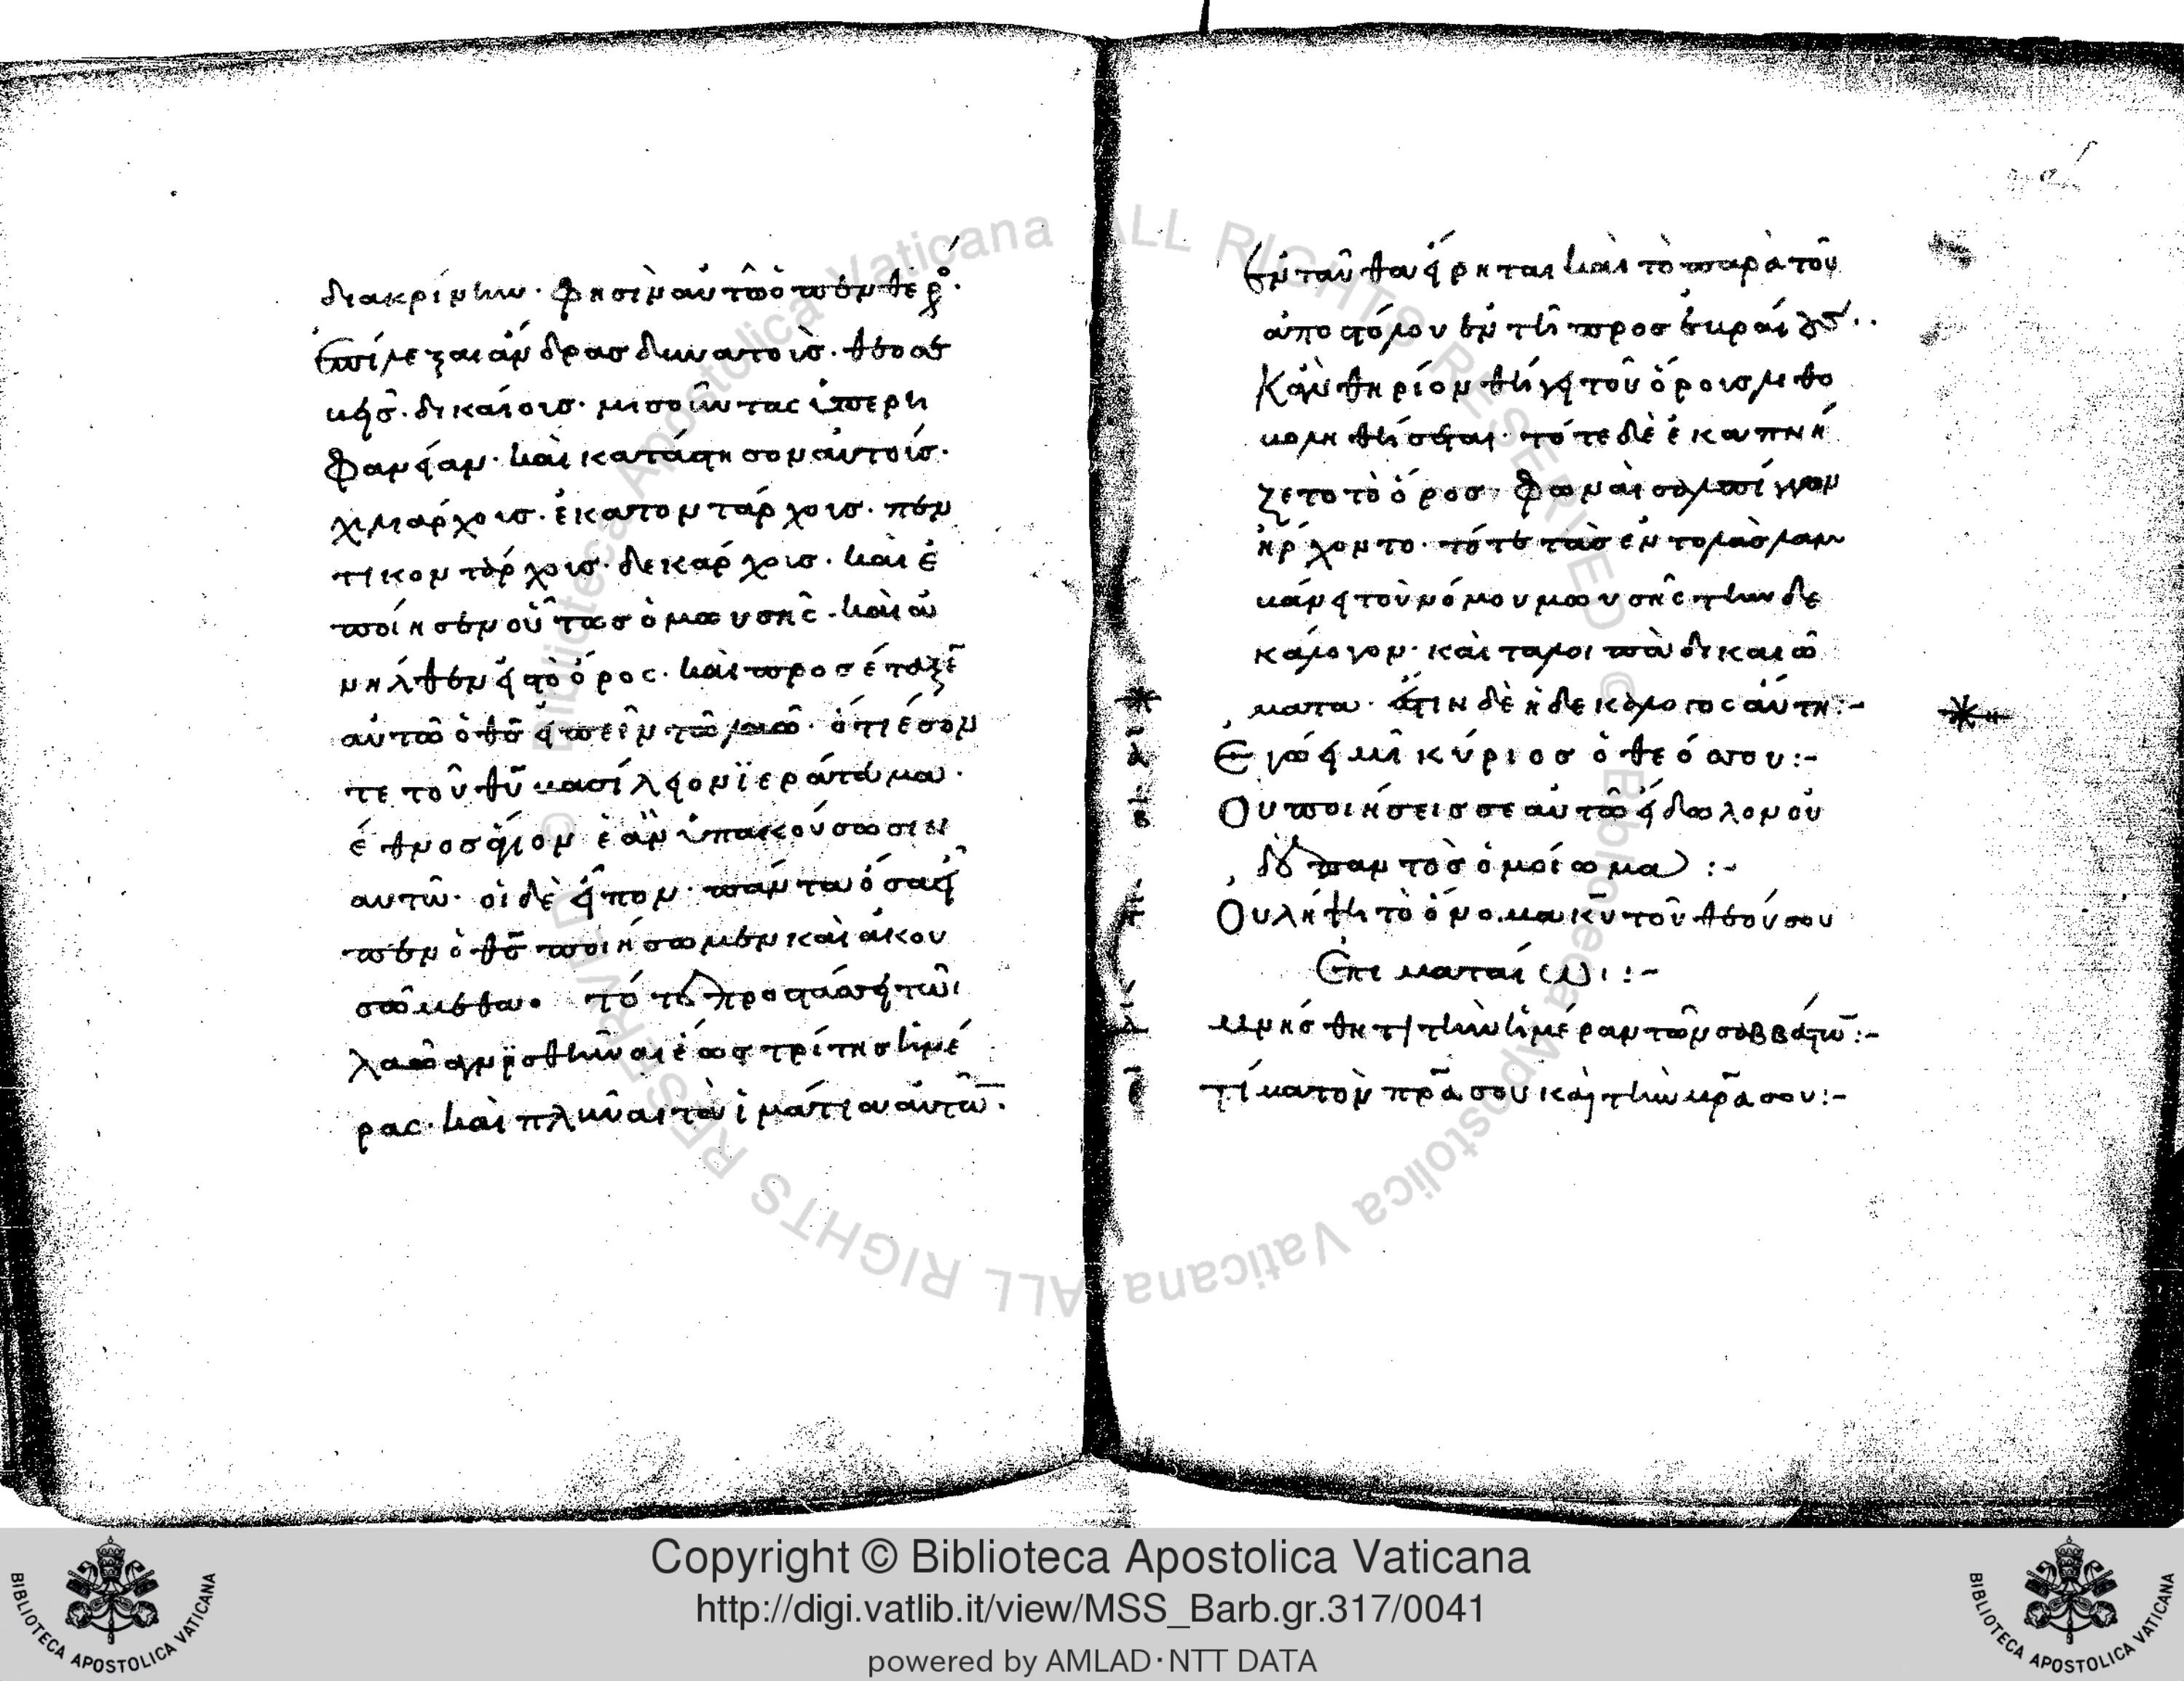 διακρίνην· φησὶν αὐτῶ ὁ πενθερ̊·
ἐπίλεξαι ἄνδρασ δυνατοὺσ· θεοσε
βεῖσ· δικαίουσ· μισοῦντας ὑπερη
φανείαν· καὶ κατάστησον αὐτοὺσ·
χιλιάρχουσ· ἑκατοντάρχουσ· πεν
τικοντάρχουσ· δεκαρχουσ· καὶ ἐ
ποίησεν οὕτωσ ὁ μωυσῆς· καὶ ἀ
νῆλθεν εἰσ τὸ ὄρος· καὶ προσέταξε̄
αὐτῶ ὁ θσ̄ εἰπεῖν τῶ λαῶ· ὅτι ἔσον
τε τοῦ θῡ βασίλειον ϊεράτευμα·
ἔθνοσ ἅγιον ἐὰν ὑπακούσωσιν
αυτῶ· οἱ δὲ εἶπον· πάντα ὅσα εἶ
πεν ὁ θσ̄ ποιήσωμεν καὶ ἀκου
σώμεθα· τότε προστάσσει τῶι
λαῶ ἁγνϊσθῆναι ἕωσ τρίτησ ἡμέ
ρας· καὶ πλῦναι τὰ ἱμάτια αὐτῶ̄·
Ἐνταῦθα εἴρηται καὶ τὸ παρὰ τοῦ
ἀποστόλου ἐν τῆ προσ ἑβραίουσ··
Κἂν θηρίον θήγει τοῦ ὄρουσ λιθο
βοληθήσεται· τότε δὲ ἐκαπνή
ζετο τὸ ὄροσ· φωναὶ σαλπίγγων
ἤρχοντο· τότε τὰσ ἐντολὰσ λαμ
βάνει τοῦ νόμου μωυσῆς τὴν δε
κάλογον· καὶ τὰ λοιπὰ δικαιώ
ματα· ἔστιν δὲ ἡ δεκάλογος αὕτη:-
ᾱ Ἐγώ εἰμι κύριοσ ὁ θεόσ σου:-
β̄ Ου ποιήσεισ σεαυτῶ εἴδωλον οὐ
δὲ παντὸσ ὁμοίωμα :-
Ου λήψη τὸ ὄνομα κῡ τοῦ θεού σου
Ἐπι ματαίωι :-
δ̄ μνήσθητι τὴν ἡμέραν τῶν σαββάτω̄:-
ε̄ τίμα τὸν πρ̄α σου καὶ τὴν μρ̄α σου:-
Copyright © Biblioteca Apostolica Vaticana
http://digi.vatlib.it/view/MSS_Barb.gr.317/0041
powered by AMLAD·NTT DATA
BIBLIOTECA APOSTOLICA VATICANA
BIBLIOTECA APOSTOLICA VATICANA